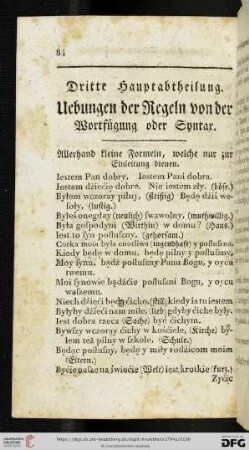 84
Dritte Hauptabtheilung.
Uebungen der Regeln von der
Wortfügung oder Syntax.
Allerhand kleine Formeln, welche nur zur
Einleitung dienen.
Iestem Pan dobry. Iestem Pani dobra.
Iestem dziecię dobre. Nie iestem zły. (böse.)
Byłem wczoray pilny, (fleißig) Będę dziś we-
soły. (lustig.)
Byłeś onegday (neulich) swawolny. (muthwillig.)
Była gospodyni (Wirthin) w domu? (Haus.)
Iest to syn posłuszny. (gehorsam.)
Corka moia była cnotliwa (tugendhaft) y posłuszna.
Kiedy będę w domu, będę pilny y posłuszny.
Moy synu, bądź posłuszny Panu Bogu, y oycu
twemu.
Moi synowie bądźcie posłuszni Bogu, y oycu
waszemu.
Niech dzieci będą ciche, (still) kiedy ia tu iestem
Byłyby dzieci nam miłe, (lieb) gdyby ciche były.
Iest dobra rzecz (Sache) być cichym.
Bywszy wczoray cichy w kościele, (Kirche) by-
łem też pilny w szkole. (Schule.)
Będąc posłuszy, będę y miły rodzicom moim
(Eltern.)
Bycie nasze na świecie (Welt) iest krotkie (kurz.)
Życie
UNIVERSITÄTS-
BIBLIOTHEK
HEIDELBERG
DFG